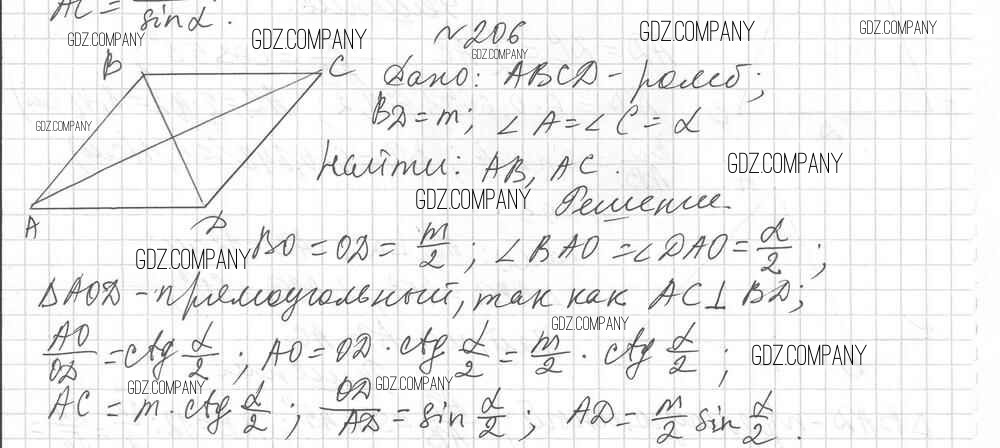 AC = / sin α .
GDZ.COMPANY GDZ.COMPANY N 206 GDZ.COMPANY GDZ.COMPANY
GDZ.COMPANY
B C Дано: ABCD - ромб;
GDZ.COMPANY BD = m; ∠A = ∠C = α
Найти: AB, AC. GDZ.COMPANY
GDZ.COMPANY Решение
A D
GDZ.COMPANY BO = OD = m/2 ; ∠BAO = ∠DAO = α/2 ;
ΔAOD - прямоугольный, так как AC ⊥ BD;
GDZ.COMPANY
AO/OD = ctg α/2 ; AO = OD · ctg α/2 = m/2 · ctg α/2 ; GDZ.COMPANY
GDZ.COMPANY GDZ.COMPANY
AC = m · ctg α/2 ; OD/AD = sin α/2 ; AD = m/2 sin α/2 .